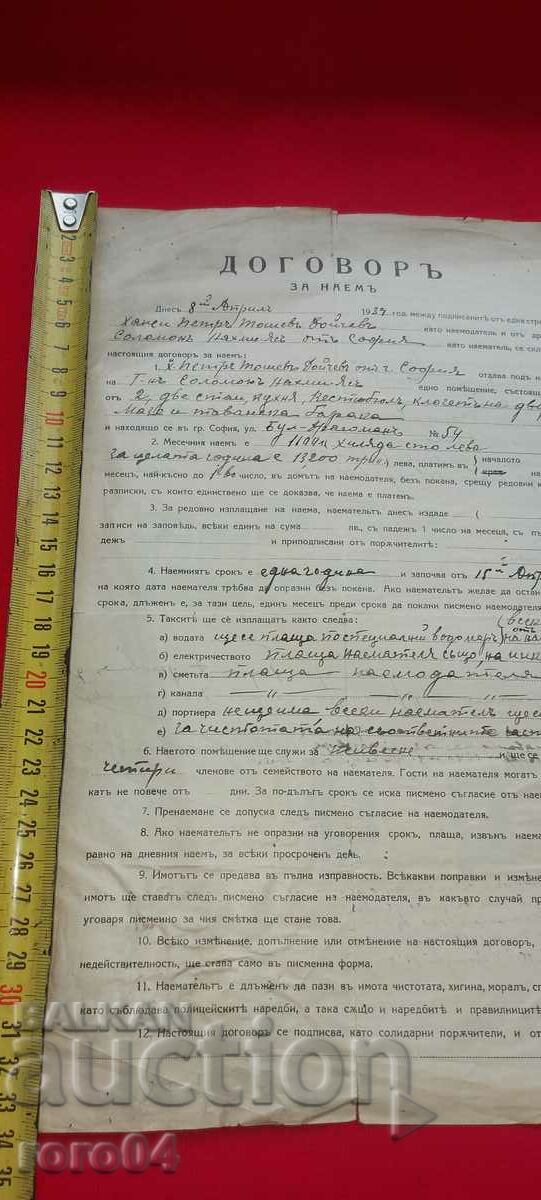 ДОГОВОРЪ
ЗА НАЕМЪ
Днесъ 8ий Априлъ 1937 год. между подписанитѣ отъ една стр
Петръ Тошевъ Дойчевъ като наемодатель и отъ др
Соломонъ Нахмиясъ отъ София като наематель, се скл
настоящия договоръ за наемъ:
1. Петръ Тошевъ Дойчевъ отъ София отдава подъ на
на Г-нъ Соломонъ Нахмиясъ едно помѣщение, състоящ
отъ 2, две стаи, кухня, вестибюлъ, клозетъ на дв
Маза и таванска барака
и находящо се въ гр. София, ул. Бул. Драгоманъ № 54
2. Месечния наемъ е 1100 хиляда сто лева
за целата година е 13,200 лева, платимъ въ началото
месецъ, най-късно до 1во число, въ домътъ на наемодателя, безъ покана, срещу редовни к
разписки, съ които единствено ще се доказва, че наема е платенъ.
3. За редовно изплащане на наема, наемательтъ днесъ издаде (
записи на заповѣдь, всѣки единъ на сума лв., съ падежъ 1 число на месеца, съ пъ
дежъ и приподписани отъ порѫчителитѣ:
4. Наемниятъ срокъ е една година и започва отъ 15ий Апр
на която дата наемателя трѣбва да опразни безъ покана. Ако наемательтъ желае да остан
срока, длъженъ е, за тази цель, единъ месецъ преди срока да покани писмено наемодателя
5. Таксите ще се изплащатъ както следва:
а) водата ще се плаща по специални водомеръ
б) електричеството плаща наемателя също,
в) сметьта плаща наемодателя
г) канала — „ — — „ —
д) портиера неидима всеки наемателъ
е) за чистотата на съответните
6. Наетото помѣщение ще служи за живѣене и ще се
четири членове отъ семейството на наемателя. Гости на наемателя могатъ
катъ не повече отъ дни. За по-дългъ срокъ се иска писмено съгласие отъ нае
7. Пренаемане се допуска следъ писмено съгласие на наемодателя.
8. Ако наемательтъ не опразни на уговорения срокъ, плаща, извънъ наема
равно на дневния наемъ, за всѣки просроченъ день.
9. Имотътъ се предава въ пълна изправность. Всѣкакви поправки и измѣне
имотъ ще ставатъ следъ писмено съгласие на наемодателя, въ какъвто случай пр
уговаря писменно за чия смѣтка ще стане това.
10. Всѣко измѣнение, допълнение или отмѣнение на настоящия договоръ,
недействителность, ще става само въ писменна форма.
11. Наемательтъ е длъженъ да пази въ имота чистотата, хигина, моралъ, сп
като съблюдава полицейскитѣ наредби, а така сѫщо и наредбитѣ и правилницитѣ
12. Настоящия договоръ се подписва, като солидарни порѫчители, и от
BALKAN
auction
roro04
2
3
4
5
6
7
8
9
10
11
12
13
14
15
16
17
18
19
20
21
22
23
24
25
26
27
28
29
30
31
32
33
34
35